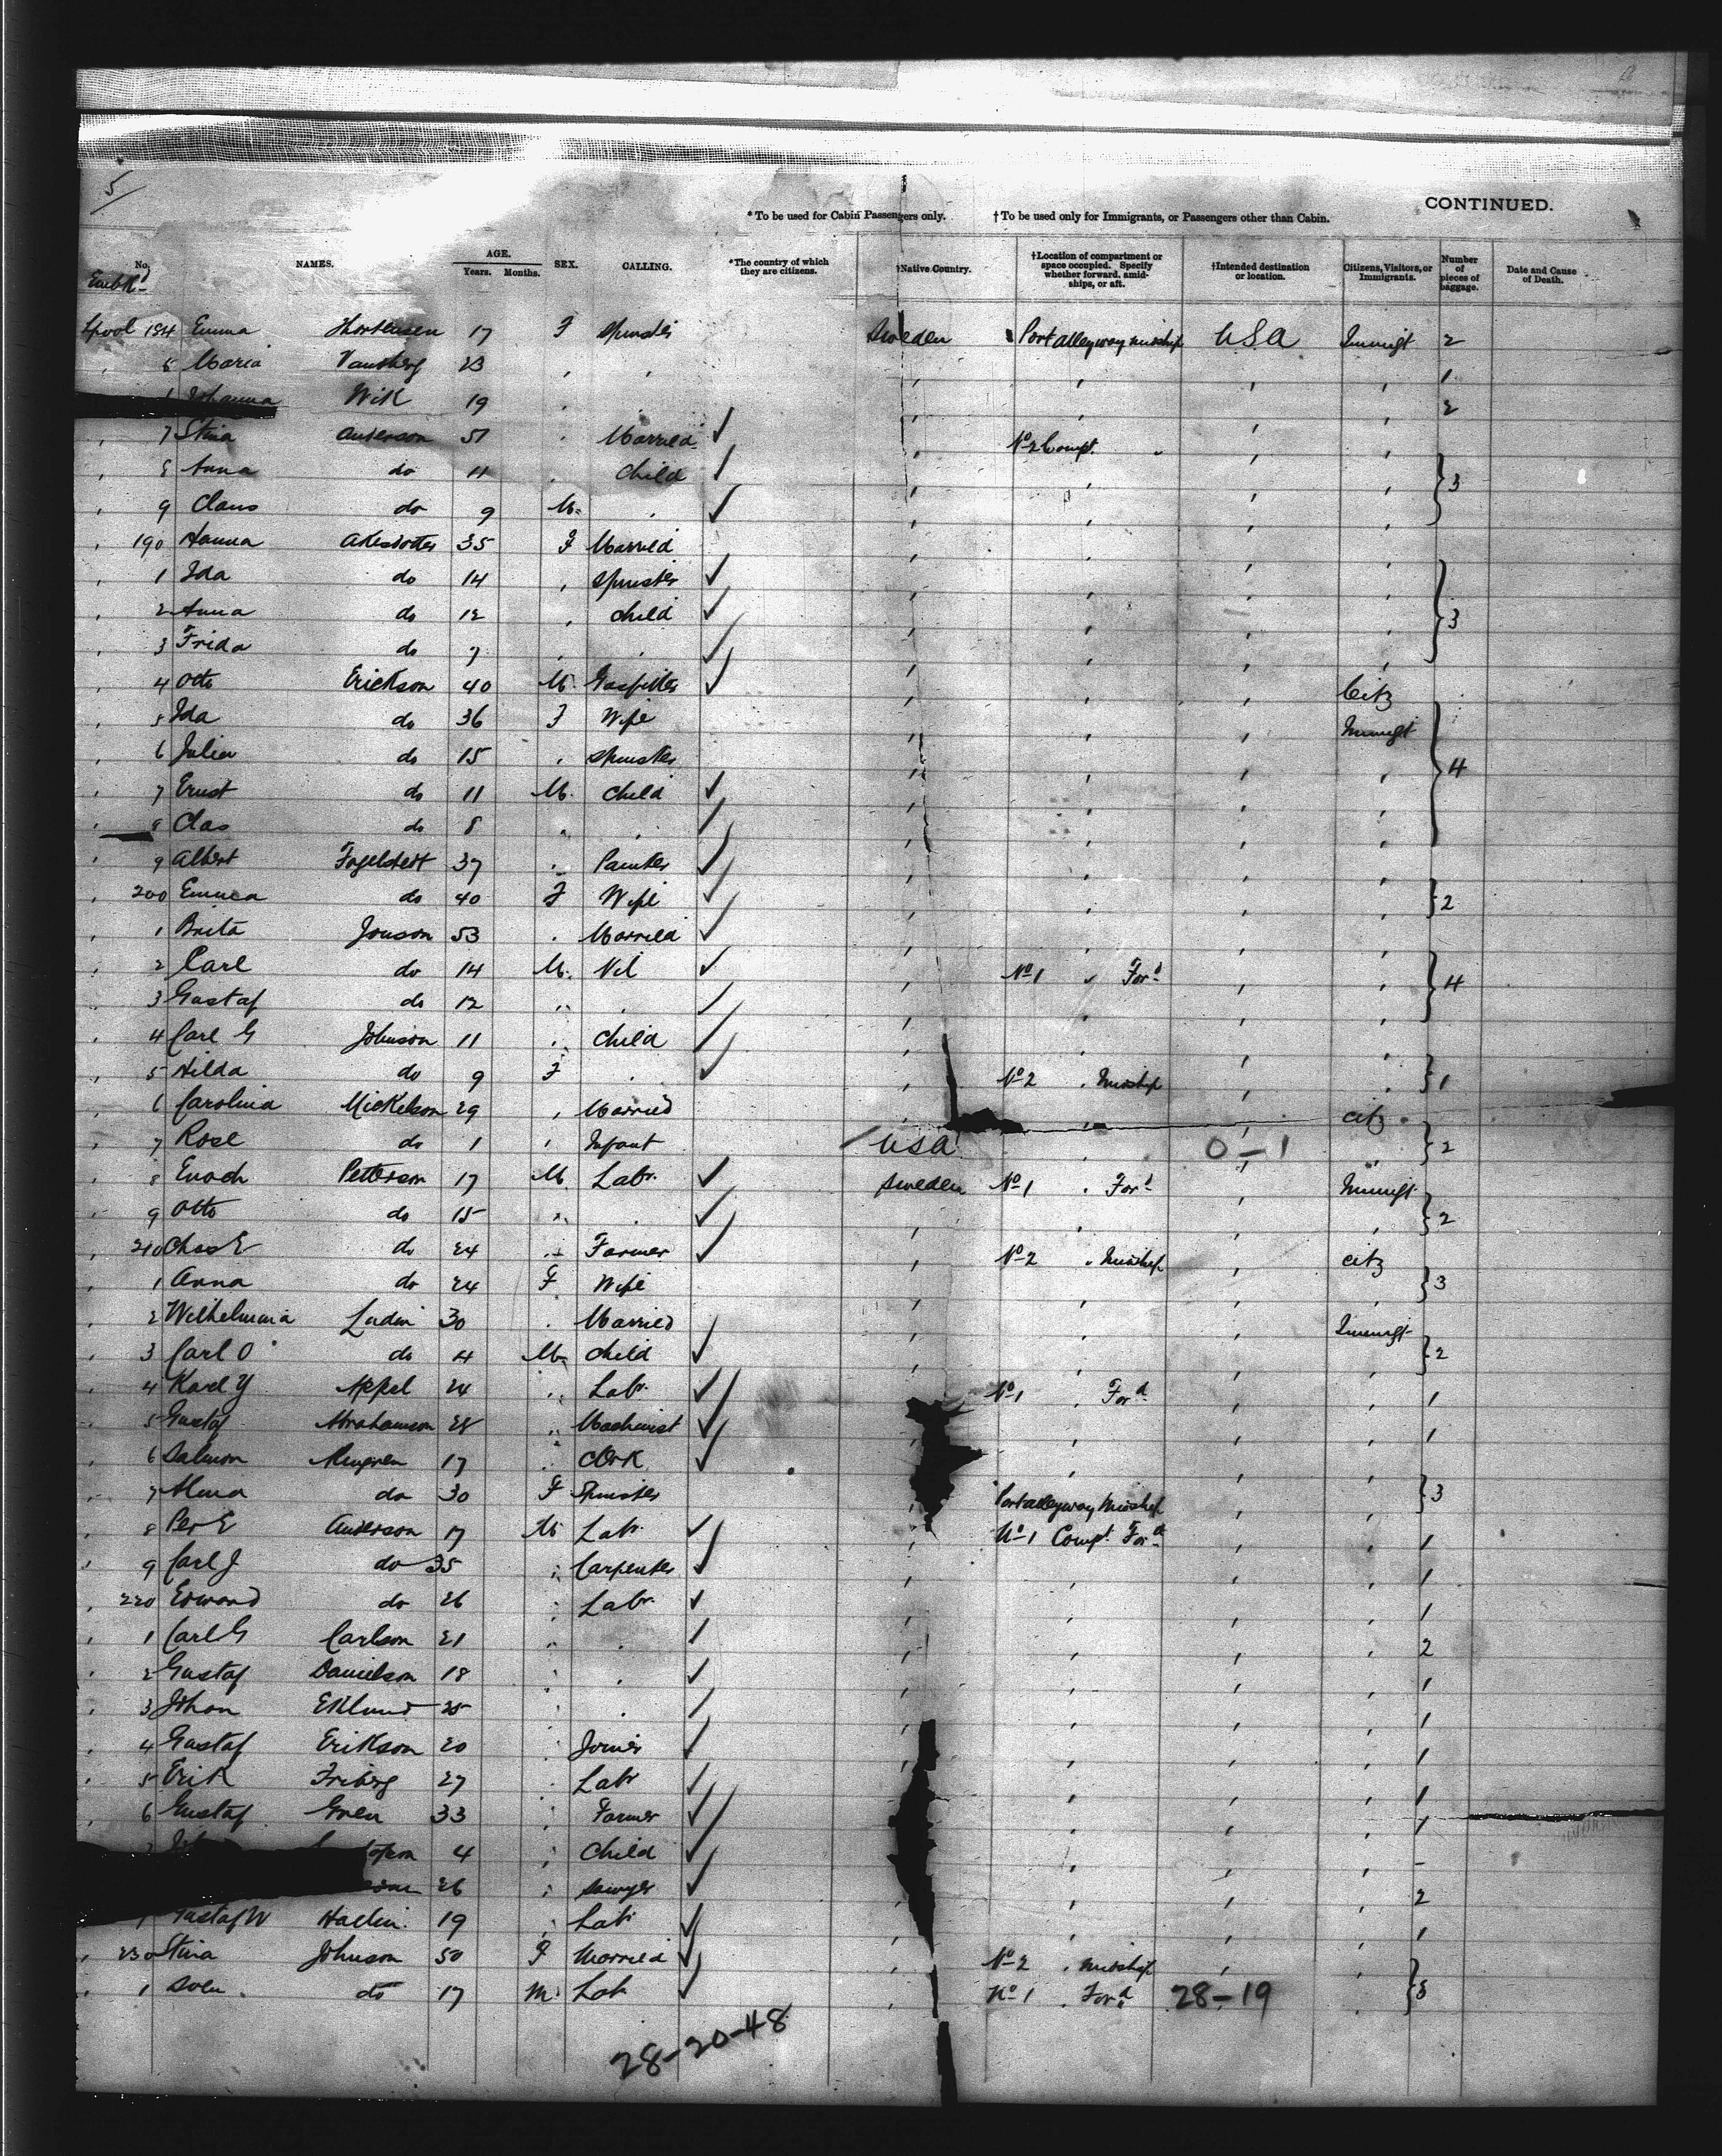 5
CONTINUED.
* To be used for Cabin Passengers only. † To be used only for Immigrants, or Passengers other than Cabin.
No. NAMES. AGE. Years. Months. SEX. CALLING. *The country of which they are citizens. †Native Country. †Location of compartment or space occupied. Specify whether forward, amidships, or aft. †Intended destination or location. Citizens, Visitors, or Immigrants. Number of pieces of baggage. Date and Cause of Death.
Embkd
Lpool 184 Emma 17 F Spinster Sweden Port alleyway midship USA Immigt 2
" 5 Maria 23 " " " " " " 1
Johanna Wik 19 " " " " " 2
" 7 Stina Anderson 51 " Married ✓ " No 2 Compt. " " "
" 8 Anna do 11 " Child ✓ " " " " } 3
" 9 Claus do 9 M. " ✓ " " " "
" 190 Hanna Akesdotter 35 F Married " " " "
" 1 Ida do 14 " Spinster ✓ " " " "
" 2 Anna do 12 " Child ✓ " " " " } 3
" 3 Frida do 7 " " ✓ " " " "
" 4 Otto Erickson 40 M. Gasfitter ✓ " " " Citz
" 5 Ida do 36 F Wife " " " Immigt
" 6 Julia do 15 " Spinster " " " " } 4
" 7 Ernst do 11 M. Child ✓ " " " "
" 8 Clas do 8 " " ✓ " " " "
" 9 Albert Fogelstedt 37 " Painter ✓ " " " "
" 200 Emma do 40 F Wife ✓ " " " " } 2
" 1 Brita Jonson 53 " Married ✓ " " " "
" 2 Carl do 14 M. Nil ✓ " No 1 " Ford " " } 4
" 3 Gustaf do 12 " " ✓ " " " "
" 4 Carl G Johnson 11 " Child ✓ " " " "
" 5 Hilda do 9 F " ✓ " No 2 " Midship " " } 1
" 6 Carolina Mickelson 29 " Married " " " citz
" 7 Rose do 1 " Infant USA " 0-1 " } 2
" 8 Enoch Petterson 17 M. Labr. ✓ Sweden No 1 " Ford " Immigt
" 9 Otto do 15 " " ✓ " " " " } 2
" 210 Chas E do 24 " Farmer ✓ " No 2 " Midship " citz
" 1 Anna do 24 F Wife " " " " } 3
" 2 Wilhelmina Ludin 30 " Married " " " Immigt
" 3 Carl O do 4 M. Child ✓ " " " " } 2
" 4 Karl Y Appel 24 " Labr. ✓ " No 1 " Ford " " 1
" 5 Gustaf Abrahamson 28 " Machinist ✓ " " " " 1
" 6 Salmon 17 " Clerk ✓ " " " "
" 7 Alma do 30 F Spinster " Port alleyway Midship " " } 3
" 8 Per E Anderson 17 M. Labr. ✓ " No 1 Compt Ford " " 1
" 9 Carl J do 35 " Carpenter ✓ " " " " 1
" 220 Edward do 26 " Labr. ✓ " " " " 1
" 1 Carl G Carlson 21 " " ✓ " " " " 2
" 2 Gustaf Danielson 18 " " ✓ " " " " 1
" 3 Johan Eklund 25 " " ✓ " " " " 1
" 4 Gustaf Erikson 20 " Joiner ✓ " " " " 1
" 5 Erik Friberg 27 " Labr ✓ " " " " 1
" 6 Gustaf Gren 33 " Farmer ✓ " " " " 1
4 " Child ✓ " " " -
26 " Sawyer ✓ " " " " 2
Gustaf W Hallin 19 " Labr ✓ " " " " 1
" 230 Stina Johnson 50 F Married ✓ " No 2 " Midship " "
" 1 Sven do 17 M. Labr ✓ " No 1 " Ford 28-19 " }
28-20-48